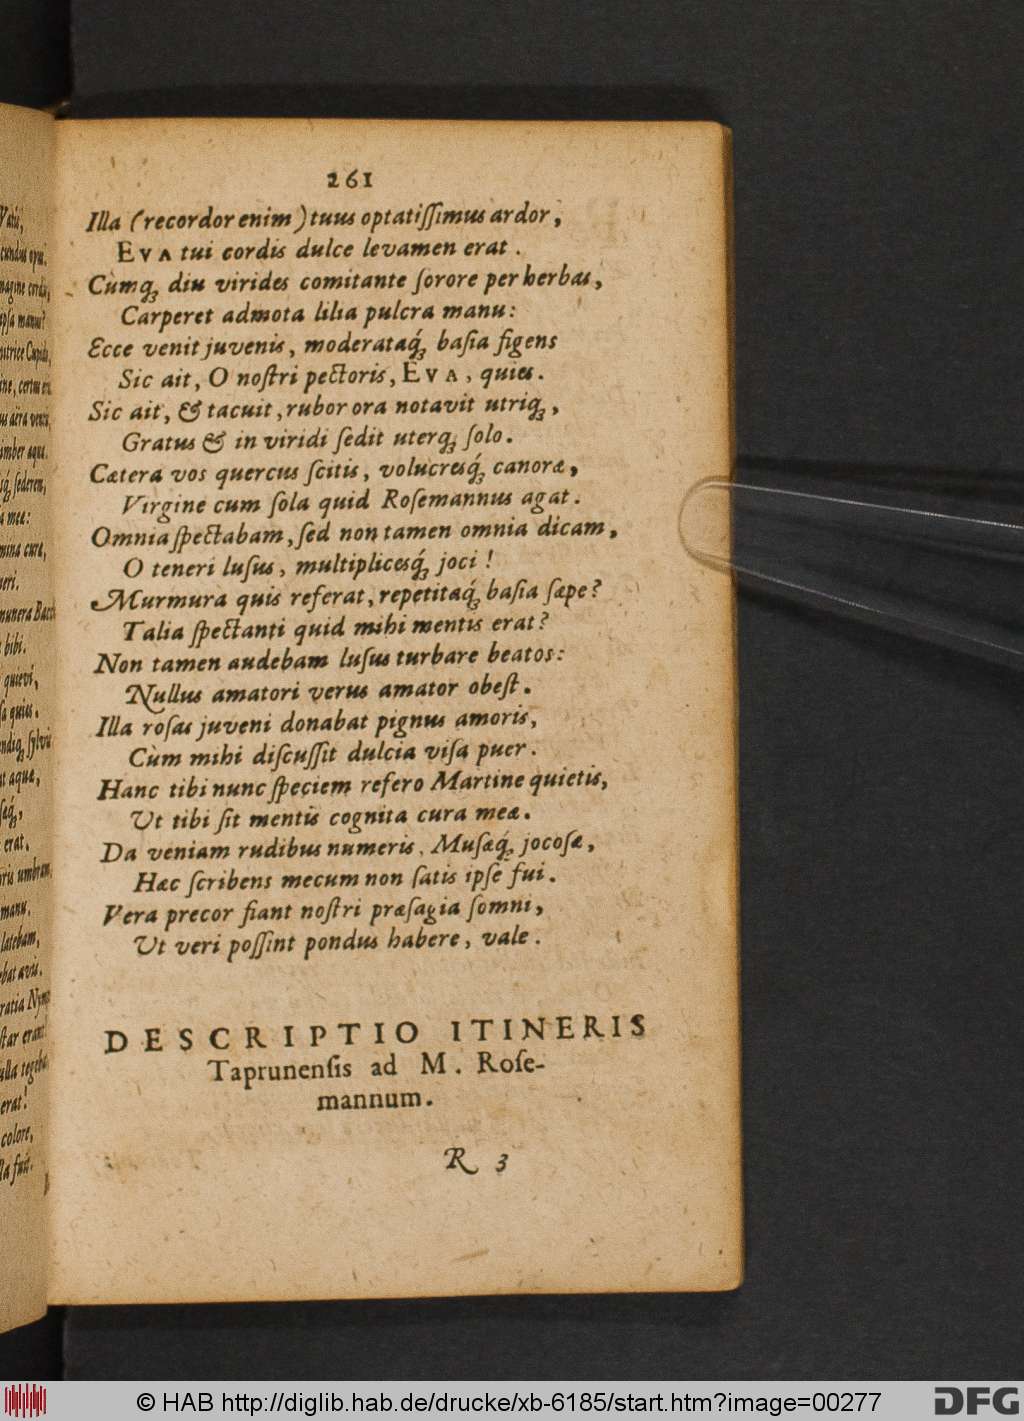 261
Illa (recordor enim) tuus optatiſſimus ardor,
EVA tui cordis dulce levamen erat.
Cùmq́ꝫ diu virides comitante ſorore per herbas,
Carperet admota lilia pulcra manu:
Ecce venit juvenis, moderataq́ꝫ baſia figens
Sic ait, O noſtri pectoris, EVA, quies.
Sic ait, & tacuit, rubor ora notavit utriqꝫ,
Gratus & in viridi ſedit uterqꝫ ſolo.
Cætera vos quercus ſcitis, volucresq́ꝫ canoræ,
Virgine cum ſola quid Roſemannus agat.
Omnia ſpectabam, ſed non tamen omnia dicam,
O teneri luſus, multiplicesq́ꝫ joci!
Murmura quis referat, repetitaq́ꝫ baſia ſæpe?
Talia ſpectanti quid mihi mentis erat?
Non tamen audebam luſus turbare beatos:
Nullus amatori verus amator obeſt.
Illa roſas juveni donabat pignus amoris,
Cùm mihi diſcuſſit dulcia viſa puer.
Hanc tibi nunc ſpeciem refero Martine quietis,
Ut tibi ſit mentis cognita cura meæ.
Da veniam rudibus numeris, Muſæq́ꝫ jocoſæ,
Hæc ſcribens mecum non ſatis ipſe fui.
Vera precor fiant noſtri præſagia ſomni,
Ut veri poſſint pondus habere, vale.
DESCRIPTIO ITINERIS
Taprunenſis ad M. Roſe-
mannum.
R 3
© HAB http://diglib.hab.de/drucke/xb-6185/start.htm?image=00277
DFG